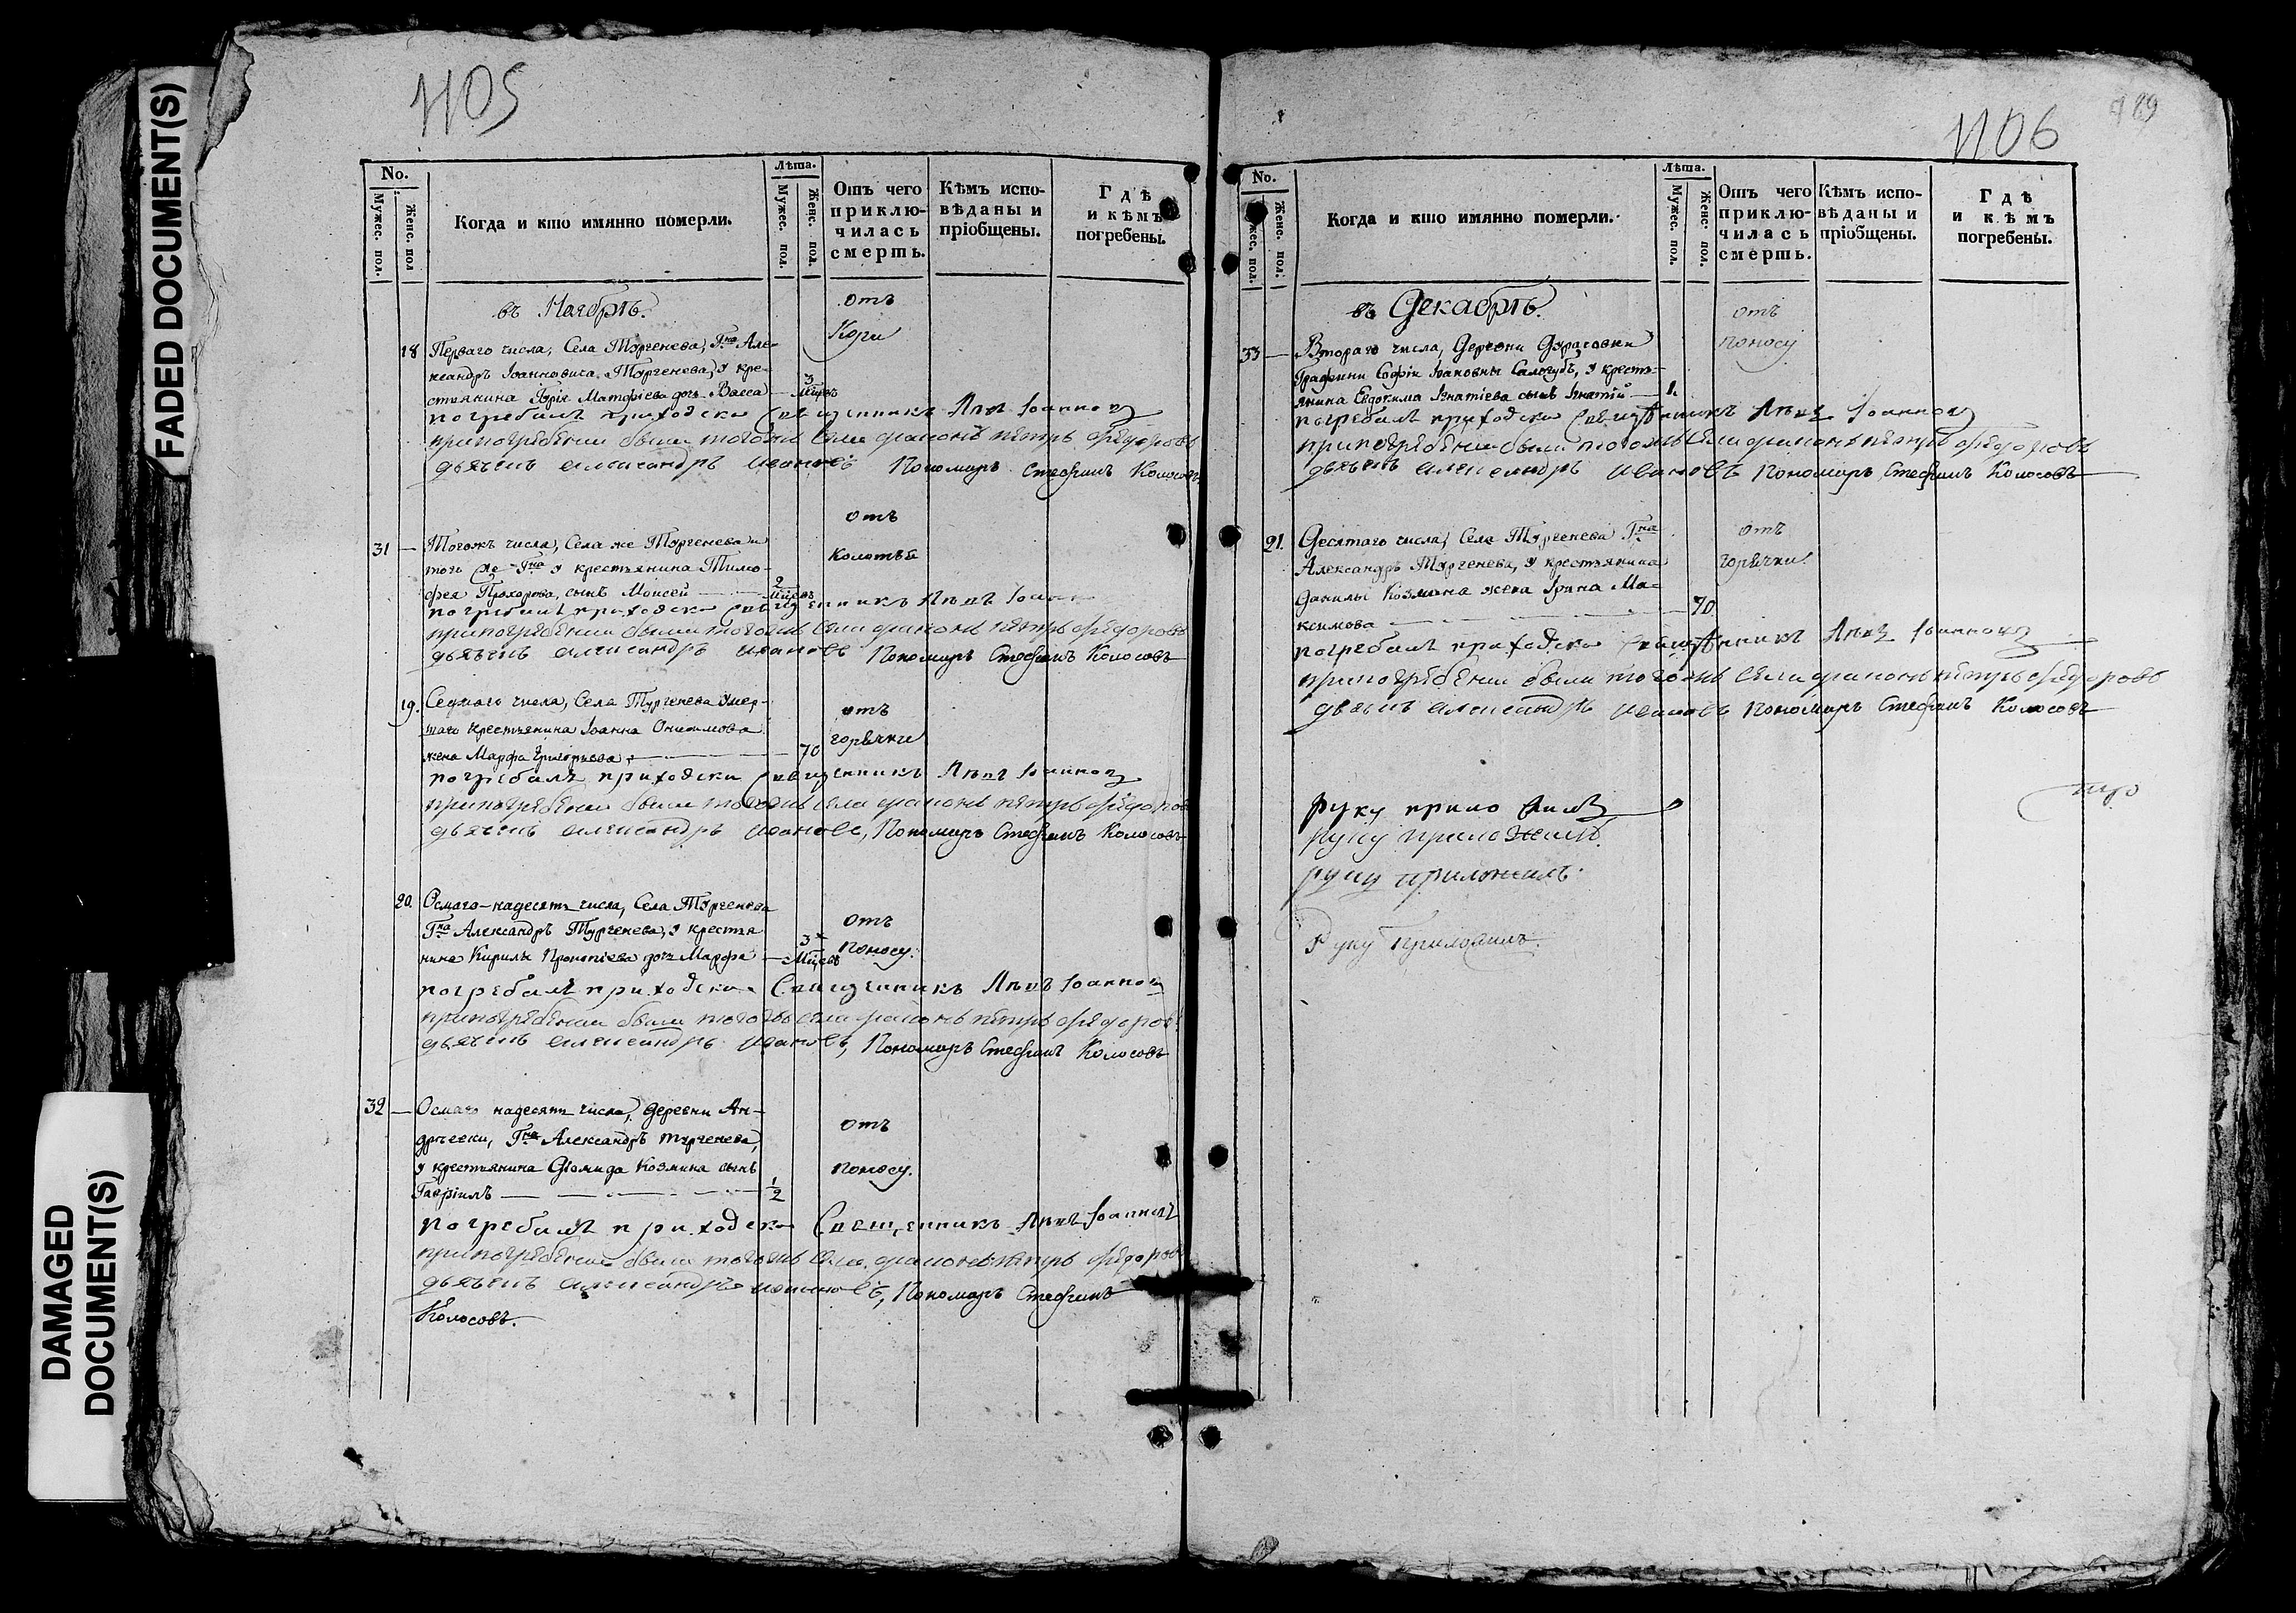 FADED DOCUMENT(S)
DAMAGED
DOCUMENT(S)
1105
No.
Мужес. пол.
Женс. пол
Когда и кто имянно померли.
Лѣта.
Мужес. пол.
Женс. пол.
Отъ чего
приклю-
чилась
смерть.
Кѣмъ испо-
вѣданы и
пріобщены.
Гдѣ
и кѣмъ
погребены.
въ Ноябрѣ.
отъ
Кори
18 Перваго числа, Села Тургенева, Гна Але-
ксандръ Іоанновича Тургенева, у кре-
стьянина Матфіева дочь Васса — 3 мцевъ
погребалъ приходски Священникъ Левъ Іоанновъ
припогребении были тогожъ села диаконъ петръ федоровъ
дьячекъ александръ ивановъ Пономарь Стефанъ Колосовъ
31 — Тогожъ числа, Села же Тургенева и
того же Гна у крестьянина Тимо-
фея Прохорова, сынъ Моисей — 2 мцевъ
отъ
колотья
погребалъ приходски священникъ Левъ Іоанн
припогребении были тогожъ села диаконъ петръ федоровъ
дьячекъ александръ ивановъ Пономарь Стефанъ Колосовъ
19. Седмаго числа, Села Тургенева умер-
шаго крестьянина Іоанна Онисимова
жена Марфа Григорьева — 70
отъ
горячки
погребалъ приходски Священникъ Левъ Іоанновъ
припогребении были тогожъ села диаконъ петръ федоров
дьячекъ александръ ивановъ, Пономарь Стефанъ Колосовъ
20. Осмаго-надесять числа, Села Тургенева
Гна Александръ Тургенева, у крестья
нина Кирилы Прокопіева дочь Марфа — 3х Мцевъ
отъ
поносу.
погребалъ приходски Священникъ Левъ Іоаннов
припогребении были тогожъ села диаконъ петръ федоров
дьячекъ александръ ивановъ, Пономарь Стефанъ Колосовъ
32 — Осмаго надесять числа, деревни Ан-
дреевки, Гна Александръ тургенева,
у крестьянина Діомида Козмина сынъ
Гавріилъ — 1/2
отъ
поносу.
погребалъ приходски Священникъ Левъ Іоанновъ
припогребении были тогожъ села диаконъ петръ федоров
дьячекъ александръ ивановъ, Пономарь Стефанъ
Колосовъ.
1106
489
No.
Мужес. пол.
Женс. пол.
Когда и кто имянно померли.
Лѣта.
Мужес. пол.
Женс. пол.
Отъ чего
приклю-
чилась
смерть.
Кѣмъ испо-
вѣданы и
пріобщены.
Гдѣ
и кѣмъ
погребены.
въ Декабрѣ.
отъ
поносу
33 — Втораго числа, Деревни Дурасовки
Графини Софіи Іоановны Сологубъ, у кресть-
янина Евдокима Игнатіева сынъ Игнатій — 1.
погребалъ приходски священникъ Левъ Іоанновъ
припогребении были тогожъ села диаконъ петръ федоровъ
дьячекъ александръ ивановъ Пономарь Стефанъ Колосовъ
21. Десятаго числа, Села Тургенева Гна
Александръ Тургенева, у крестьянина
Данилы Козмина жена Ірина Ма-
ксимова — 70
отъ
горячки.
погребалъ приходски священникъ Левъ Іоанновъ
припогребении были тогожъ села диаконъ петръ федоровъ
дьячекъ александръ ивановъ Пономарь Стефанъ Колосовъ
руку приложилъ
руку приложилъ.
руку приложилъ.
Руку приложилъ.